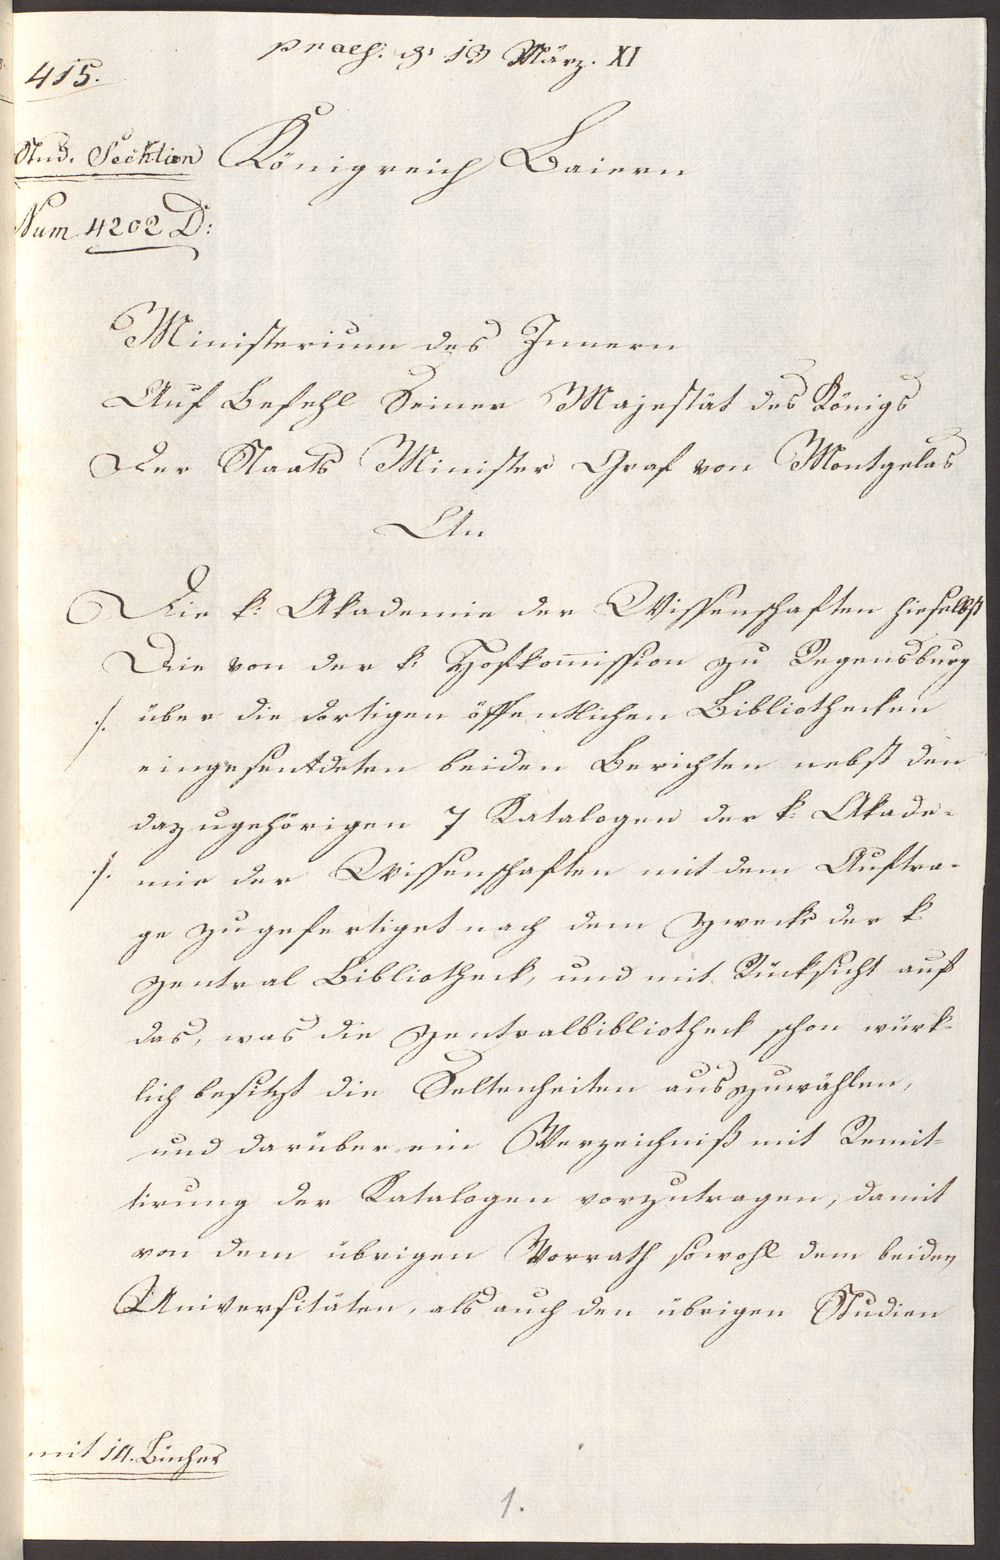 praes. d. 13 März. XI
415.
Stud. Secktion
Königreich Baiern
Num. 4202 D:
Ministerium des Innern
Auf Befehl Seiner Majestät des Königs
Der Staats Minister Graf von Montgelas
An
Die k: Akademie der Wissenschaften hieselbst
Die von der k: Hofkom̅ission zu Regensburg
./. über die dortigen öffentlichen Bibliothecken
eingesendeten beiden Berichten nebst den
dazugehörigen 7 Katalogen der k: Akade-
./. mie der Wissenschaften mit dem Auftra-
ge zugefertiget nach dem Zwecke der k.
Zentral Bibliotheck, und mit Rücksicht auf
das, was die Zentralbibliotheck schon würk-
lich besitzt die Seltenheiten auszuwählen,
und darüber ein Verzeichniß mit Remit-
tirung der Katalogen vorzutragen, damit
von dem übrigen Vorrath sowohl dem beiden
Universitäten, als auch den übrigen Studien
mit 14. Bücher
1.